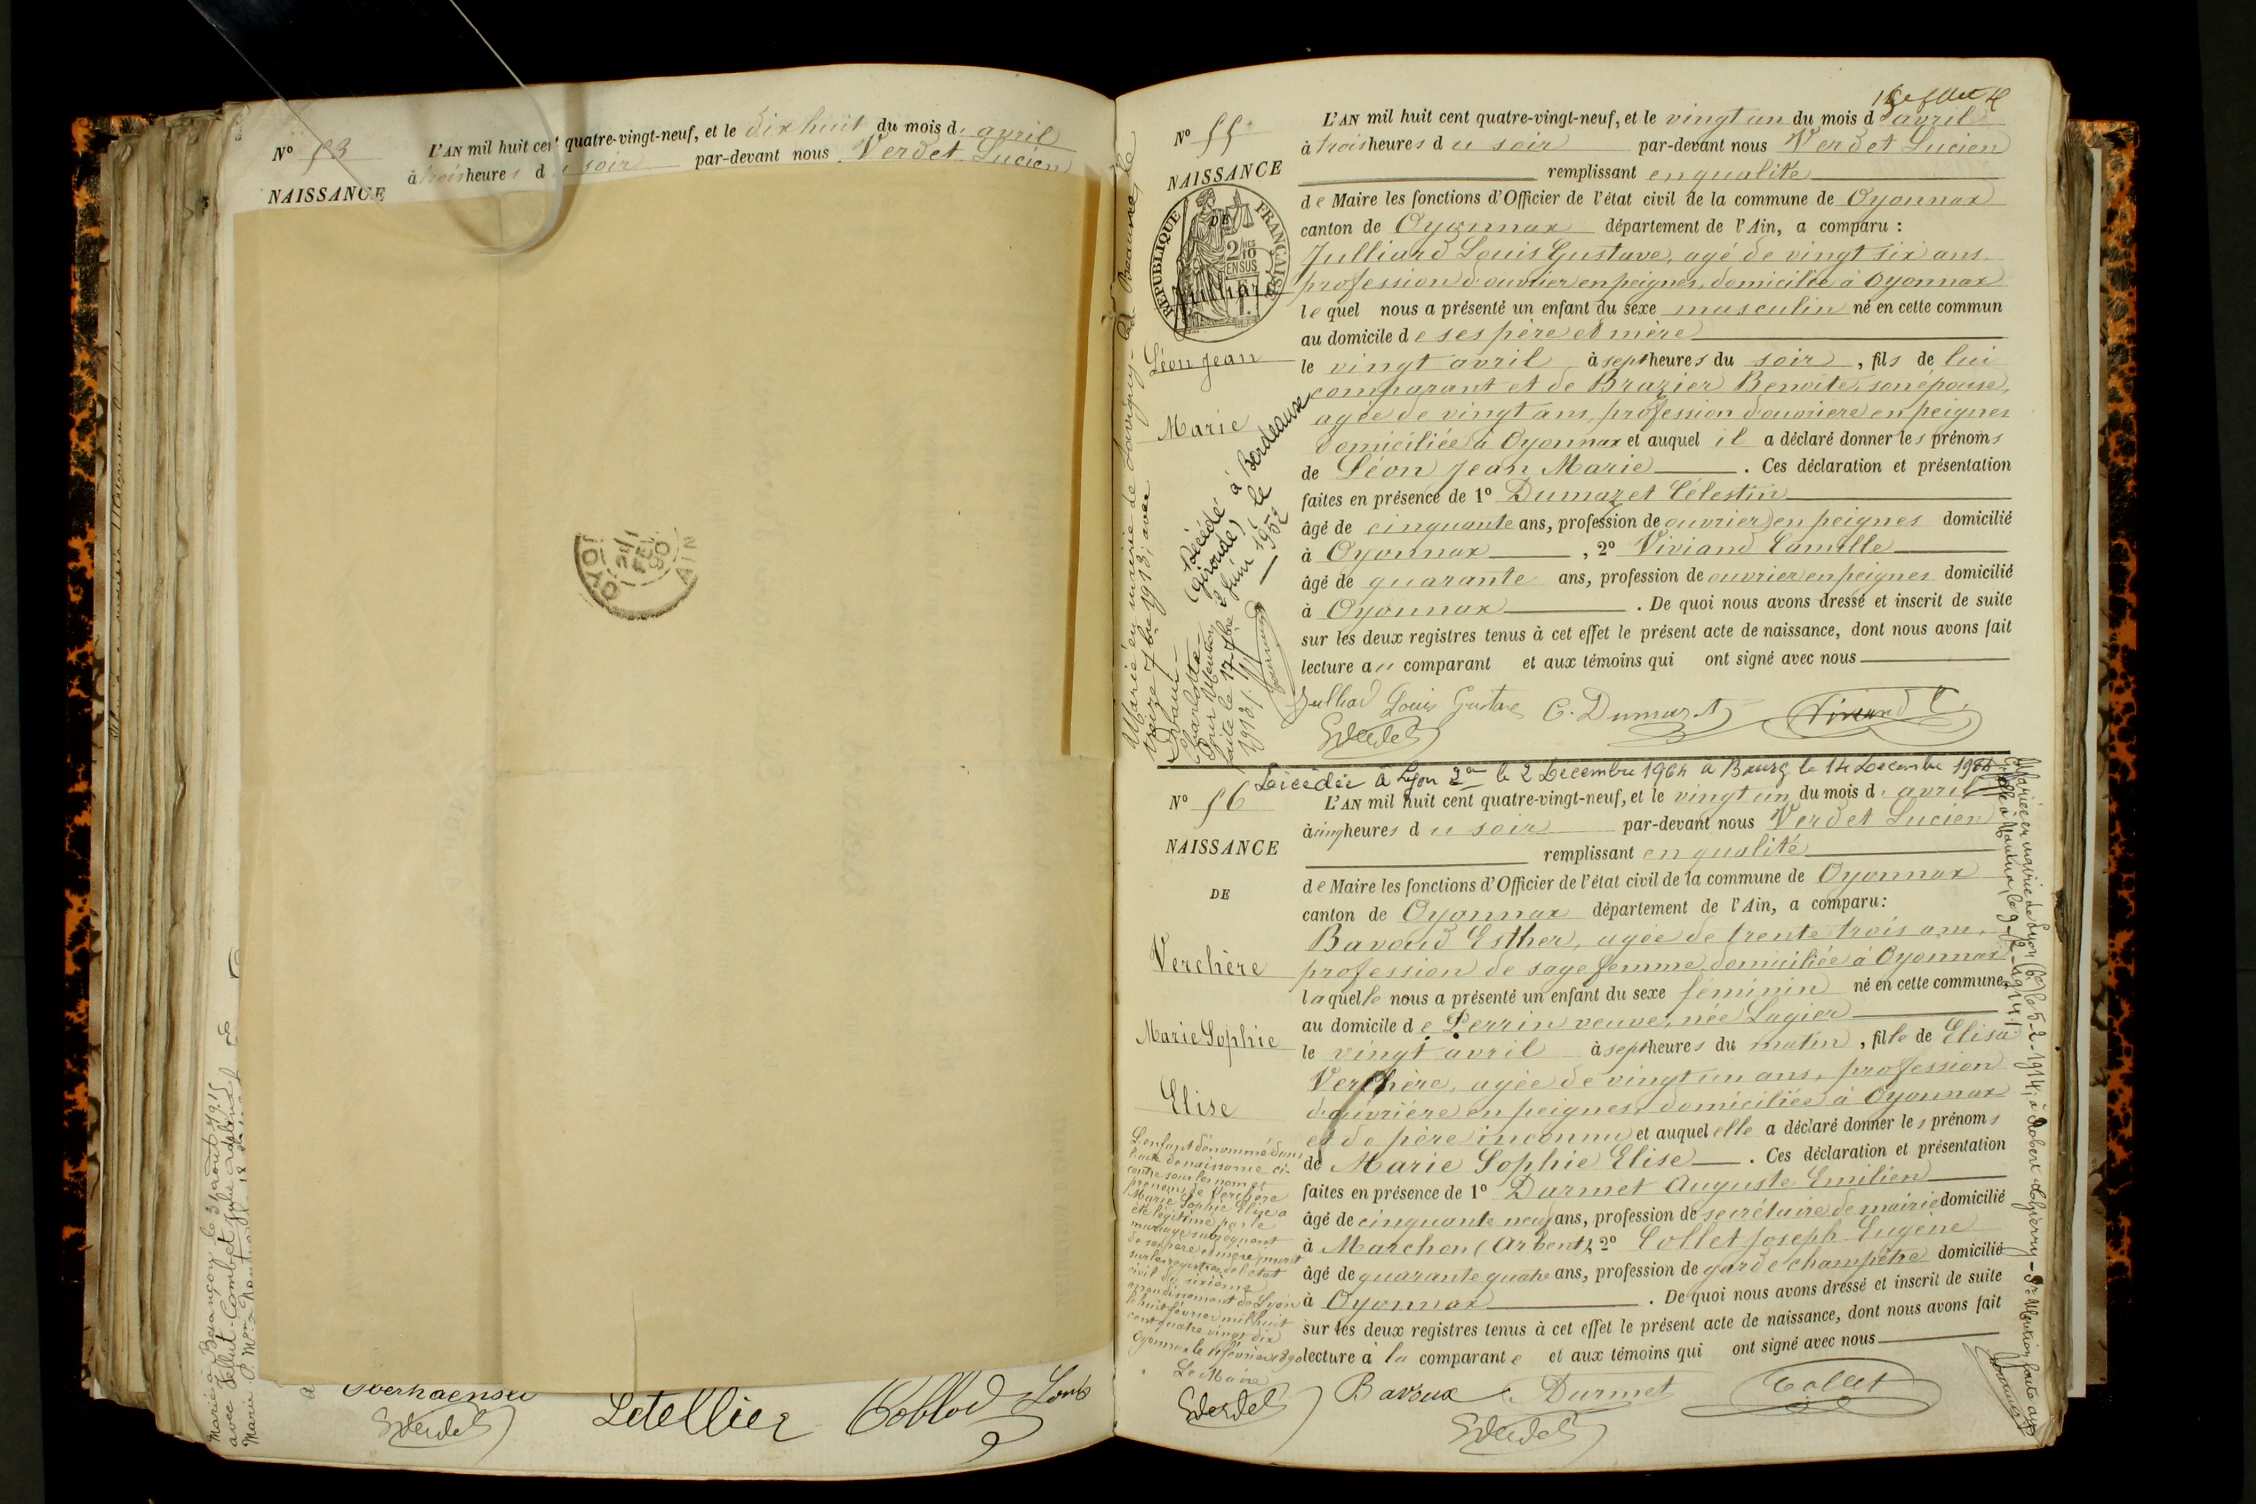 N° 53
NAISSANCE
L'AN mil huit cent quatre-vingt-neuf, et le dix huit du mois d' avril
à trois heures du soir par-devant nous Verdet Lucien
OYO
AIN
Letellier
Marié à Besançon le 31 août 1915
N° 55
NAISSANCE
DE
RÉPUBLIQUE FRANÇAISE
2/10 EN SUS
Julliard
Léon Jean
Marie
L'AN mil huit cent quatre-vingt-neuf, et le vingt un du mois d'avril
à trois heures du soir par-devant nous Verdet Lucien
remplissant en qualité
de Maire les fonctions d'Officier de l'état civil de la commune de Oyonnax
canton de Oyonnax département de l'Ain, a comparu :
Julliard Louis Gustave, agé de vingt six ans,
profession d'ouvrier en peignes, domicilié à Oyonnax
lequel nous a présenté un enfant du sexe masculin né en cette commun
au domicile de ses père et mère
le vingt avril à sept heures du soir, fils de lui
comparant et de Brazier Benoite, son épouse,
agée de vingt ans, profession d'ouvriere en peignes
domiciliée à Oyonnax et auquel il a déclaré donner les prénoms
de Léon Jean Marie. Ces déclaration et présentation
faites en présence de 1° Dumazet Célestin
âgé de cinquante ans, profession de ouvrier en peignes domicilié
à Oyonnax, 2° Viviand Camille
âgé de quarante ans, profession de ouvrier en peignes domicilié
à Oyonnax. De quoi nous avons dressé et inscrit de suite
sur les deux registres tenus à cet effet le présent acte de naissance, dont nous avons fait
lecture au comparant et aux témoins qui ont signé avec nous
Décédé à Bordeaux
(Gironde) le
2 Juin 1952
Marié en mairie de Savigny-les-Beaune le
treize 7bre 1913, avec
Charlotte
Pour Mention
faite le 17 7bre
1913.
Julliard Louis Gustave C. Dumazet Viviand C.
Décédée à Lyon 2e le 2 Décembre 1964 à Bourg le 14 Décembre 1964
N° 56
NAISSANCE
DE
Verchère
Marie Sophie
Elise
L'AN mil huit cent quatre-vingt-neuf, et le vingt un du mois d' avril
à cinq heures du soir par-devant nous Verdet Lucien
remplissant en qualité
de Maire les fonctions d'Officier de l'état civil de la commune de Oyonnax
canton de Oyonnax département de l'Ain, a comparu :
Bavoud Esther, agée de trente trois ans,
profession de sage femme, domiciliée à Oyonnax
laquelle nous a présenté un enfant du sexe féminin né en cette commune
au domicile de Perrin veuve, née Lagier
le vingt avril à sept heures du matin, fille de Elisa
Verchère, agée de vingt un ans, profession
d'ouvrière en peignes, domiciliée à Oyonnax
et de père inconnu et auquel elle a déclaré donner les prénoms
de Marie Sophie Elise. Ces déclaration et présentation
faites en présence de 1° Durmet Auguste Emilien
âgé de cinquante neuf ans, profession de secrétaire de mairie domicilié
à Marchon (Arbent), 2° Collet Joseph Eugène
âgé de quarante quatre ans, profession de garde champêtre domicilié
à Oyonnax. De quoi nous avons dressé et inscrit de suite
sur les deux registres tenus à cet effet le présent acte de naissance, dont nous avons fait
lecture à la comparante et aux témoins qui ont signé avec nous
L'enfant dénommé dans
l'acte de naissance ci-
contre sous les nom et
prénoms de Verchère
Marie Sophie Elise a
été légitimé par le
mariage subséquent
de ses père et mère inscrit
sur les registres de l'état
civil du sixième
arrondissement de Lyon
le huit février mil huit
cent quatre vingt dix
Oyonnax le 11 février 1890
Le Maire
Bavoux Durmet Collet